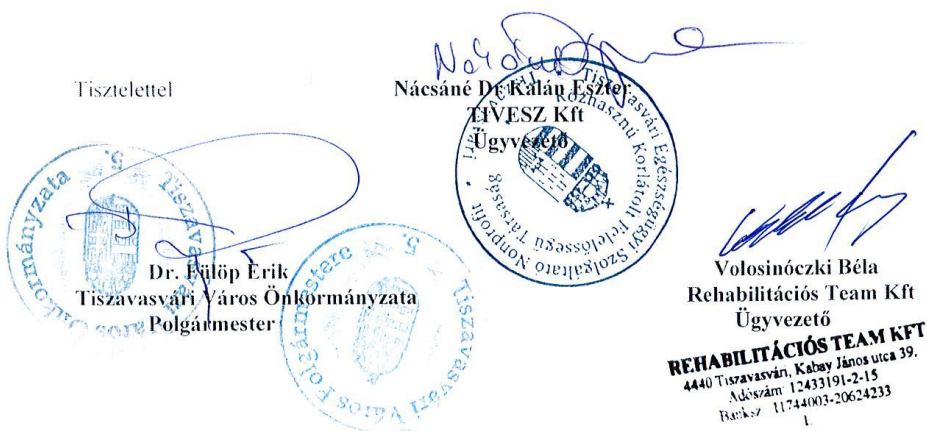 Tisztelettel
Nácsáné Dr Kalán Eszter
TIVESZ Kft
Ügyvezető
Tiszavasvári Egészségügyi Szolgáltató Nonprofit
Közhasznú Korlátolt Felelősségű Társaság
Dr. Fülöp Erik
Tiszavasvári Város Önkormányzata
Polgármester
Tiszavasvári Város Önkormányzata
5.
Tiszavasvári Város Polgármestere
5.
Volosinóczki Béla
Rehabilitációs Team Kft
Ügyvezető
REHABILITÁCIÓS TEAM KFT
4440 Tiszavasvári, Kabay János utca 39.
Adószám: 12433191-2-15
Banksz.: 11744003-20624233
1.